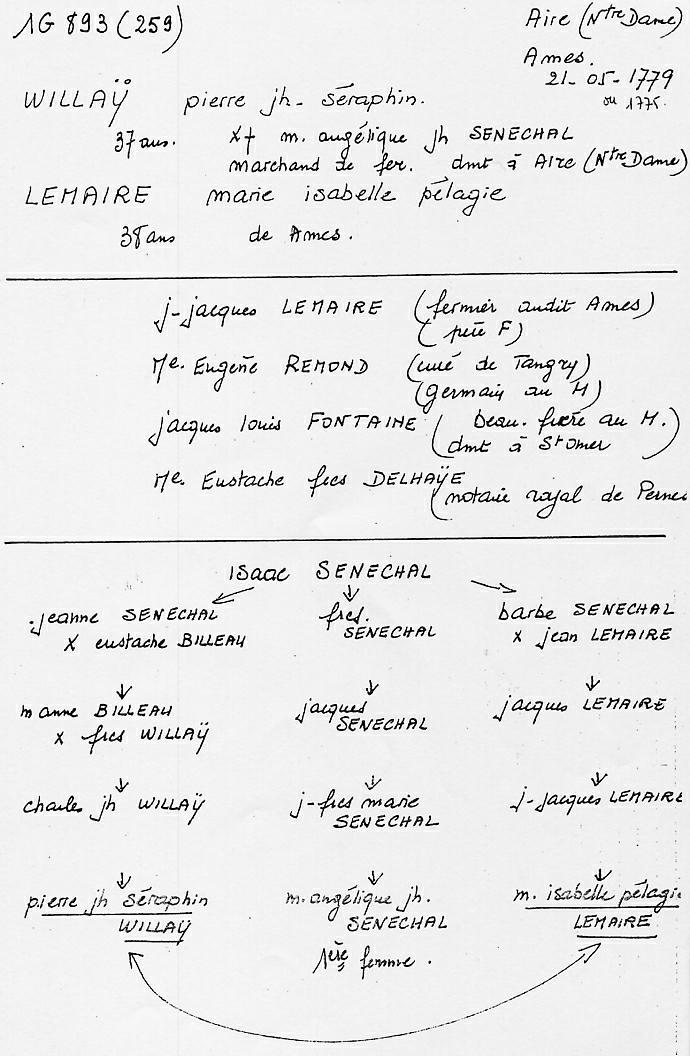 1G 893 (259)
Aire (Ntre Dame)
Ames.
21-05-1779
ou 1775.
WILLAŸ pierre jh- séraphin.
37 ans. x† m. angélique jh SENECHAL
marchand de fer. dmt à AIRE (Ntre Dame)
LEMAIRE marie isabelle pélagie
38 ans de Ames.
j-jacques LEMAIRE (fermier audit Ames)
(père F)
Me. Eugène REMOND (curé de Tangry)
(germain au M)
jacques louis FONTAINE (beau. frère au M.)
dmt à St Omer
Me. Eustache fces DELHAŸE
(notaire royal de Pernes
isaac SENECHAL
jeanne SENECHAL
x eustache BILLEAU
fces.
SENECHAL
barbe SENECHAL
x jean LEMAIRE
m anne BILLEAU
x fces WILLAŸ
jacques
SENECHAL
jacques LEMAIRE
charles jh WILLAŸ
j-fces marie
SENECHAL
j-jacques LEMAIRE
pierre jh séraphin
WILLAŸ
m. angélique jh.
SENECHAL
1ère femme.
m. isabelle pélagie
LEMAIRE